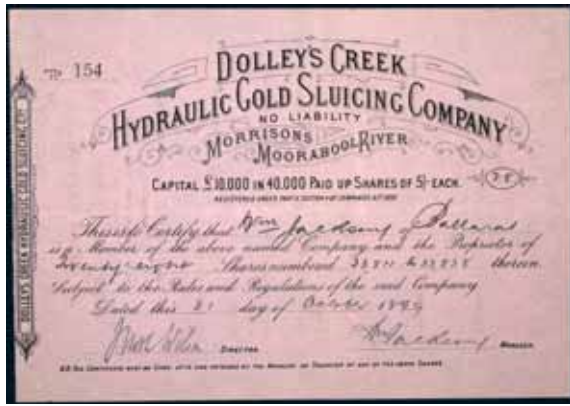 No 154
DOLLEY'S CREEK
HYDRAULIC GOLD SLUICING COMPANY
NO LIABILITY
MORRISONS
MOORABOOL RIVER
CAPITAL £10,000 IN 40,000 PAID UP SHARES OF 5/- EACH.
28
This is to Certify that Wm Jackson of Ballarat
is a Member of the above named Company and the Proprietor of
Twenty eight Shares numbered to therein
Subject to the Rules and Regulations of the said Company
Dated this 21 day of October
DIRECTOR
MANAGER
DOLLEYS CREEK HYDRAULIC GOLD SLUICING CO